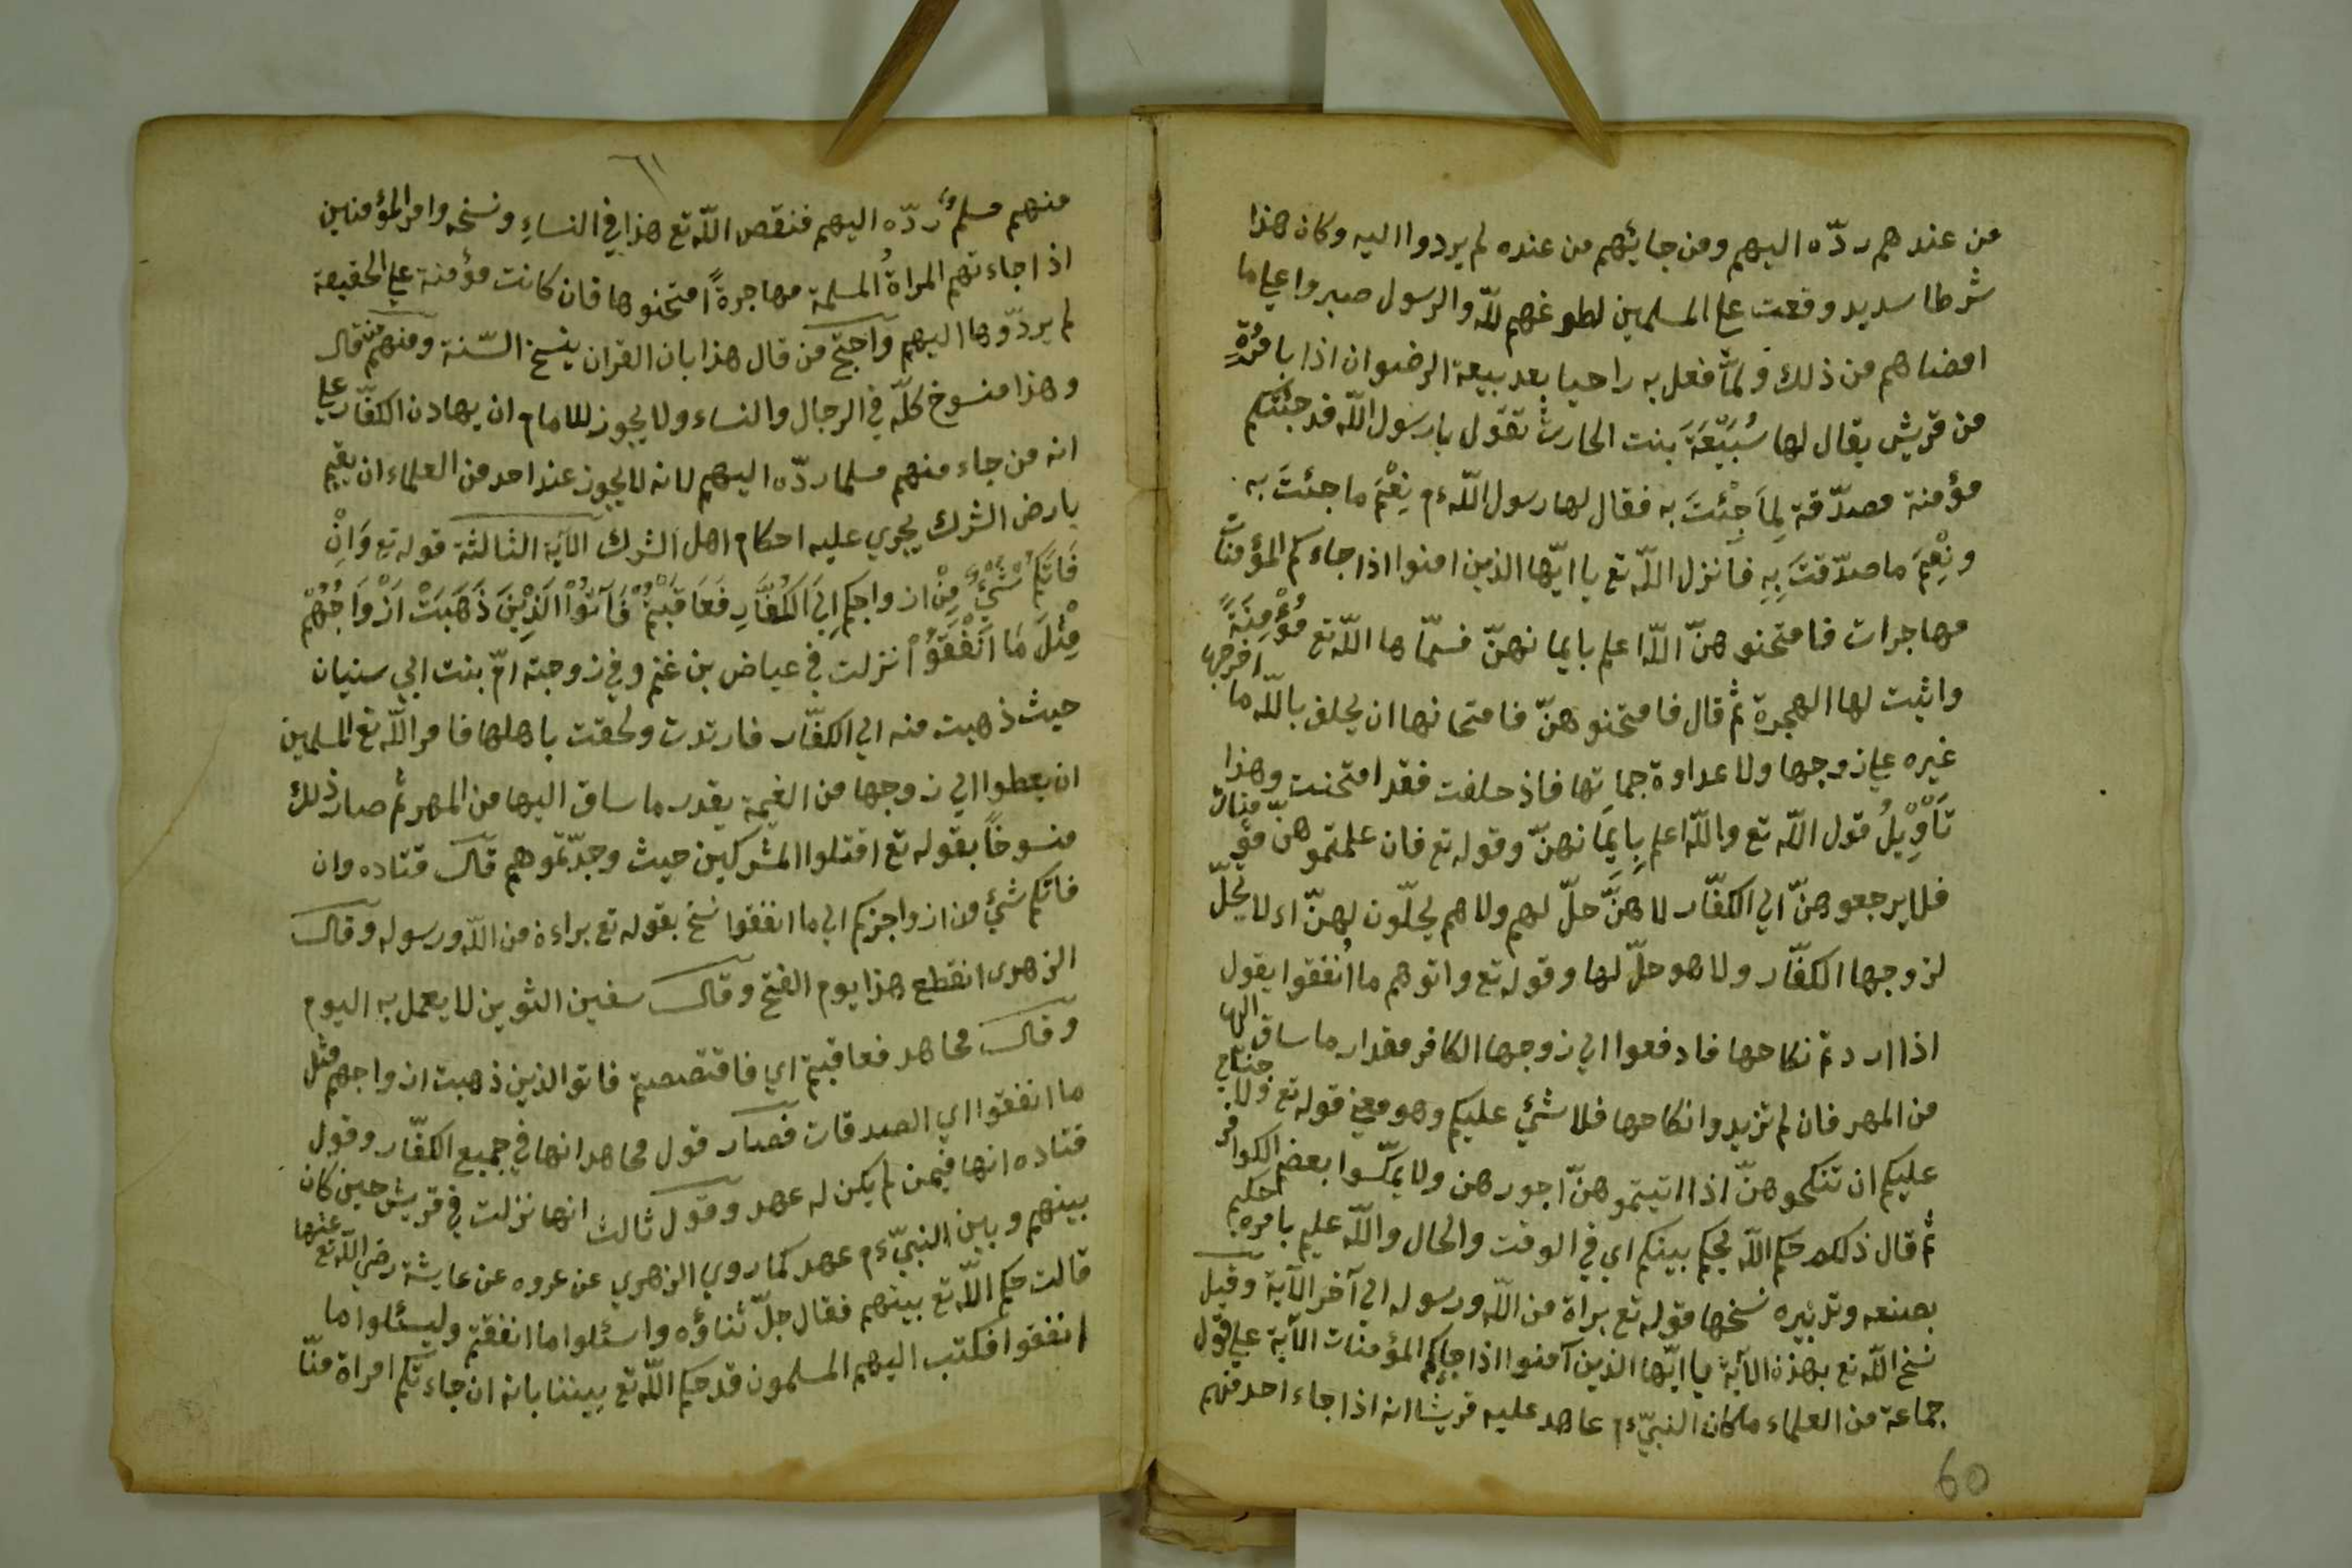 من عندهم ردّه اليهم ومن جايئهم من عنده لم يردوا اليه وكان هذا
شرطا سديد وقعت علي المسلمين لطوغهم للّه والرسول صبروا علي ما
امضاهم من ذلك ولمّا فعل به راحيا بعد بيعة الرضوان اذا بامرُةٍ
من قريش يقال لها سُبَيّعَةَ بنت الحارث تقول يا رسول اللّه قد جئتكم
مؤمنة مصدّقة لِمَا جِئتَ به فقال لها رسول اللّه ءم نِعْمَ ما جئتَ به
ونِعْمَ ما صدّقتَ بِهِ فانزل اللّه تع يا ايّها الذين امنوا اذا جاءكم المؤمنات
مهاجرات فامتحنوهنّ اللّه اعلم بايمانهنّ فسمّاها اللّه تع مُؤْمِنَةً
واثبت لها الهجرة ثم قال فامتحنوهنّ فامتحانها ان يحلف باللّه ما اخرجها
غيره علي زوجها ولا عداوة جماتها فاذ حلفت فقد امتحنت وهذا
تَأوْيِلُ قول اللّه تع واللّه اعلم بِايمَانهنّ وقوله تع فان علمتموهنّ مؤمنات
فلا يرجعوهنّ الي الكفّار لا هنَّ حلّ لهم ولا هم يحلّون لهنّ اء لا يحلّ
لزوجها الكفّار ولا هو حلّ لها وقوله تع واتوهم ما اُنفقوا يقول
اذا اردتم نكاحها فادفعوا الي زوجها الكافر مقدار ما ساق اليها
من المهر فان لم تزيدوا نكاحها فلا شئ عليكم وهو معني قوله تع ولا جناح
عليكم ان تنكحوهنّ اذا اتيتموهنّ اجورهن ولا يمكّسوا بعضم الكوافر
ثم قال ذلكم حكم اللّه يحكم بينكم اي في الوقت والحال واللّه عليم بامره حكيم
بصنعه وتدبيره نسخها قوله تع براة من اللّه ورسوله الي آخر الآية وقيل
نسخ اللّه تع بهذه الآية يا ايّها الذين آمنوا اذا جاءكم المؤمنات الآية علي قول
جماعة من العلماء ما كان النبيّ ءم عاهد عليه قريشا انه اذا جاء احد منهم
60
٦١
منهم مسلمٌ ردّه اليهم فنقص اللّه تع هذا في النساءِ ونسخه وامر المؤمنين
اذا جاءتهم المراةُ المسلمة مهاجرةً امتحنوها فان كانت مؤمنة علي الحقيقة
لم يردّوها اليهم واحتجّ من قال هذا بان القران ينسخ السّنة ومنهم من قال
وهذا منسوخ كلّه في الرجال والنساء ولا يجوز للامام ان يهادن الكفّار علي
انه من جاء منهم مسلما ردّه اليهم لانه لا يجوز عند احد من العلماء ان يقيم
بارض الشرك يجري عليه احكام اهل الشرك الآية الثالثة قوله تع وَاِنْ
فَاتَكُمْ شَيْءٌ مِنْ ازواجكم اِلَي الكُفّارِ فَعَاقَبْتُمْ فَآتُوْا الَذِيْنَ ذَهَبَتْ اَزْوَاجُهُمْ
مِثْلَ مَا اَنْفَقَوُا نزلت في عياض بن غنم وفي زوجته امّ بنت ابي سنيان
حيث ذهبت منه الي الكفّار فارتدت ولحقت باهلها فامر اللّه تع المسلمين
ان يعطوا الي زوجها من الغيمة يقدر ما ساق اليها من المهر ثم صار ذلك
منسوخاً بقوله تع اقتلوا المشركين حيث وجدّتموهم قال قتاده وان
فاتكم شئ من ازواجزكم الي ما انفقوا نسخ بقوله تع براءة من اللّه ورسوله وقال
الزهرى انقطع هذا يوم الفتح وقال سفين الثوين لا يعمل به اليوم
وقال مجاهد فعاقبتم اي فاقتصصتم فاتوالذين ذهبت ازواجهم مثل
ما انفقوا اي الصدقات فصار قول مجاهد انها في جميع الكفّار وقول
قتاده انها فيمن لم يكن له عهد وقول ثالث انها نزلت في قريش حين كان
بينهم وبين النبيّ ءم عهد كما روي الزهري عن عروه عن عايشة رضي اللّه تع عنها
قالت حكم اللّه تع بينهم فقال جلّ ثناؤه واسئلوا ما انفقتم وليسئلوا ما
انفقوا فكتب اليهم المسلمون قد حكم اللّه تع بيننا بانه ان جاءتكم امراة منّا